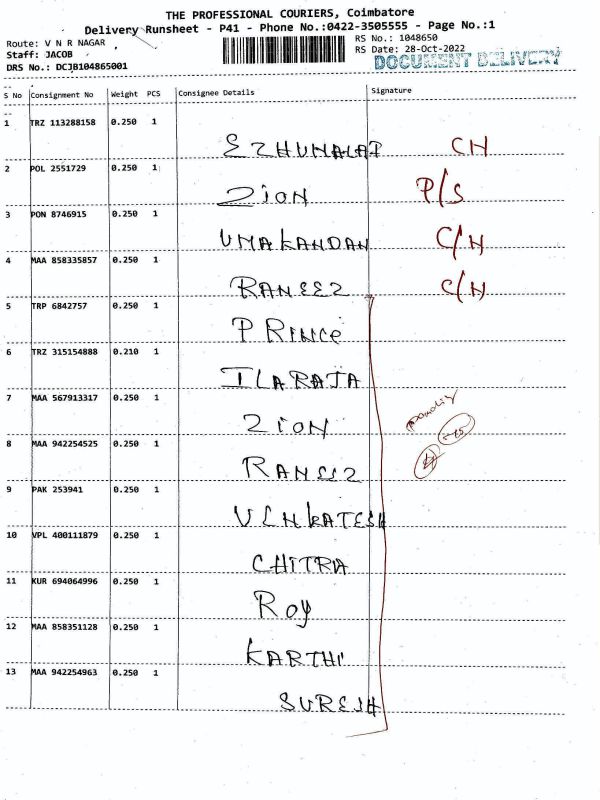 THE PROFESSIONAL COURIERS, Coimbatore
Delivery Runsheet - P41 - Phone No.:0422-3505555 - Page No.:1
Route: V N R NAGAR RS No.: 1048650
Staff: JACOB RS Date: 28-Oct-2022
DRS No.: DCJB104865001 DOCUMENT DELIVERY
S No Consignment No Weight PCS Consignee Details Signature
1 TRZ 113288158 0.250 1
EZHUMALAI CH
2 POL 2551729 0.250 1
ZION P/S
3 PON 8746915 0.250 1
UMAKANDAN C/H
4 MAA 858335857 0.250 1
RANEEZ C/H
5 TRP 6842757 0.250 1
PRINCE
6 TRZ 315154888 0.210 1
ILARAJA
7 MAA 567913317 0.250 1
ZION
8 MAA 942254525 0.250 1
RANEEZ
9 PAK 253941 0.250 1
VENKATESH
10 VPL 400111879 0.250 1
CHITRA
11 KUR 694064996 0.250 1
ROY
12 MAA 858351128 0.250 1
KARTHI
13 MAA 942254963 0.250 1
SURESH